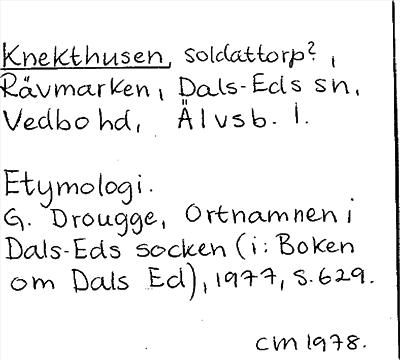 Knekthusen, soldattorp?,
Rävmarken, Dals-Eds sn,
Vedbo hd, Älvsb. l.
Etymologi.
G. Drougge, Ortnamnen i
Dals-Eds socken (i: Boken
om Dals Ed), 1977, s. 629.
CM 1978.